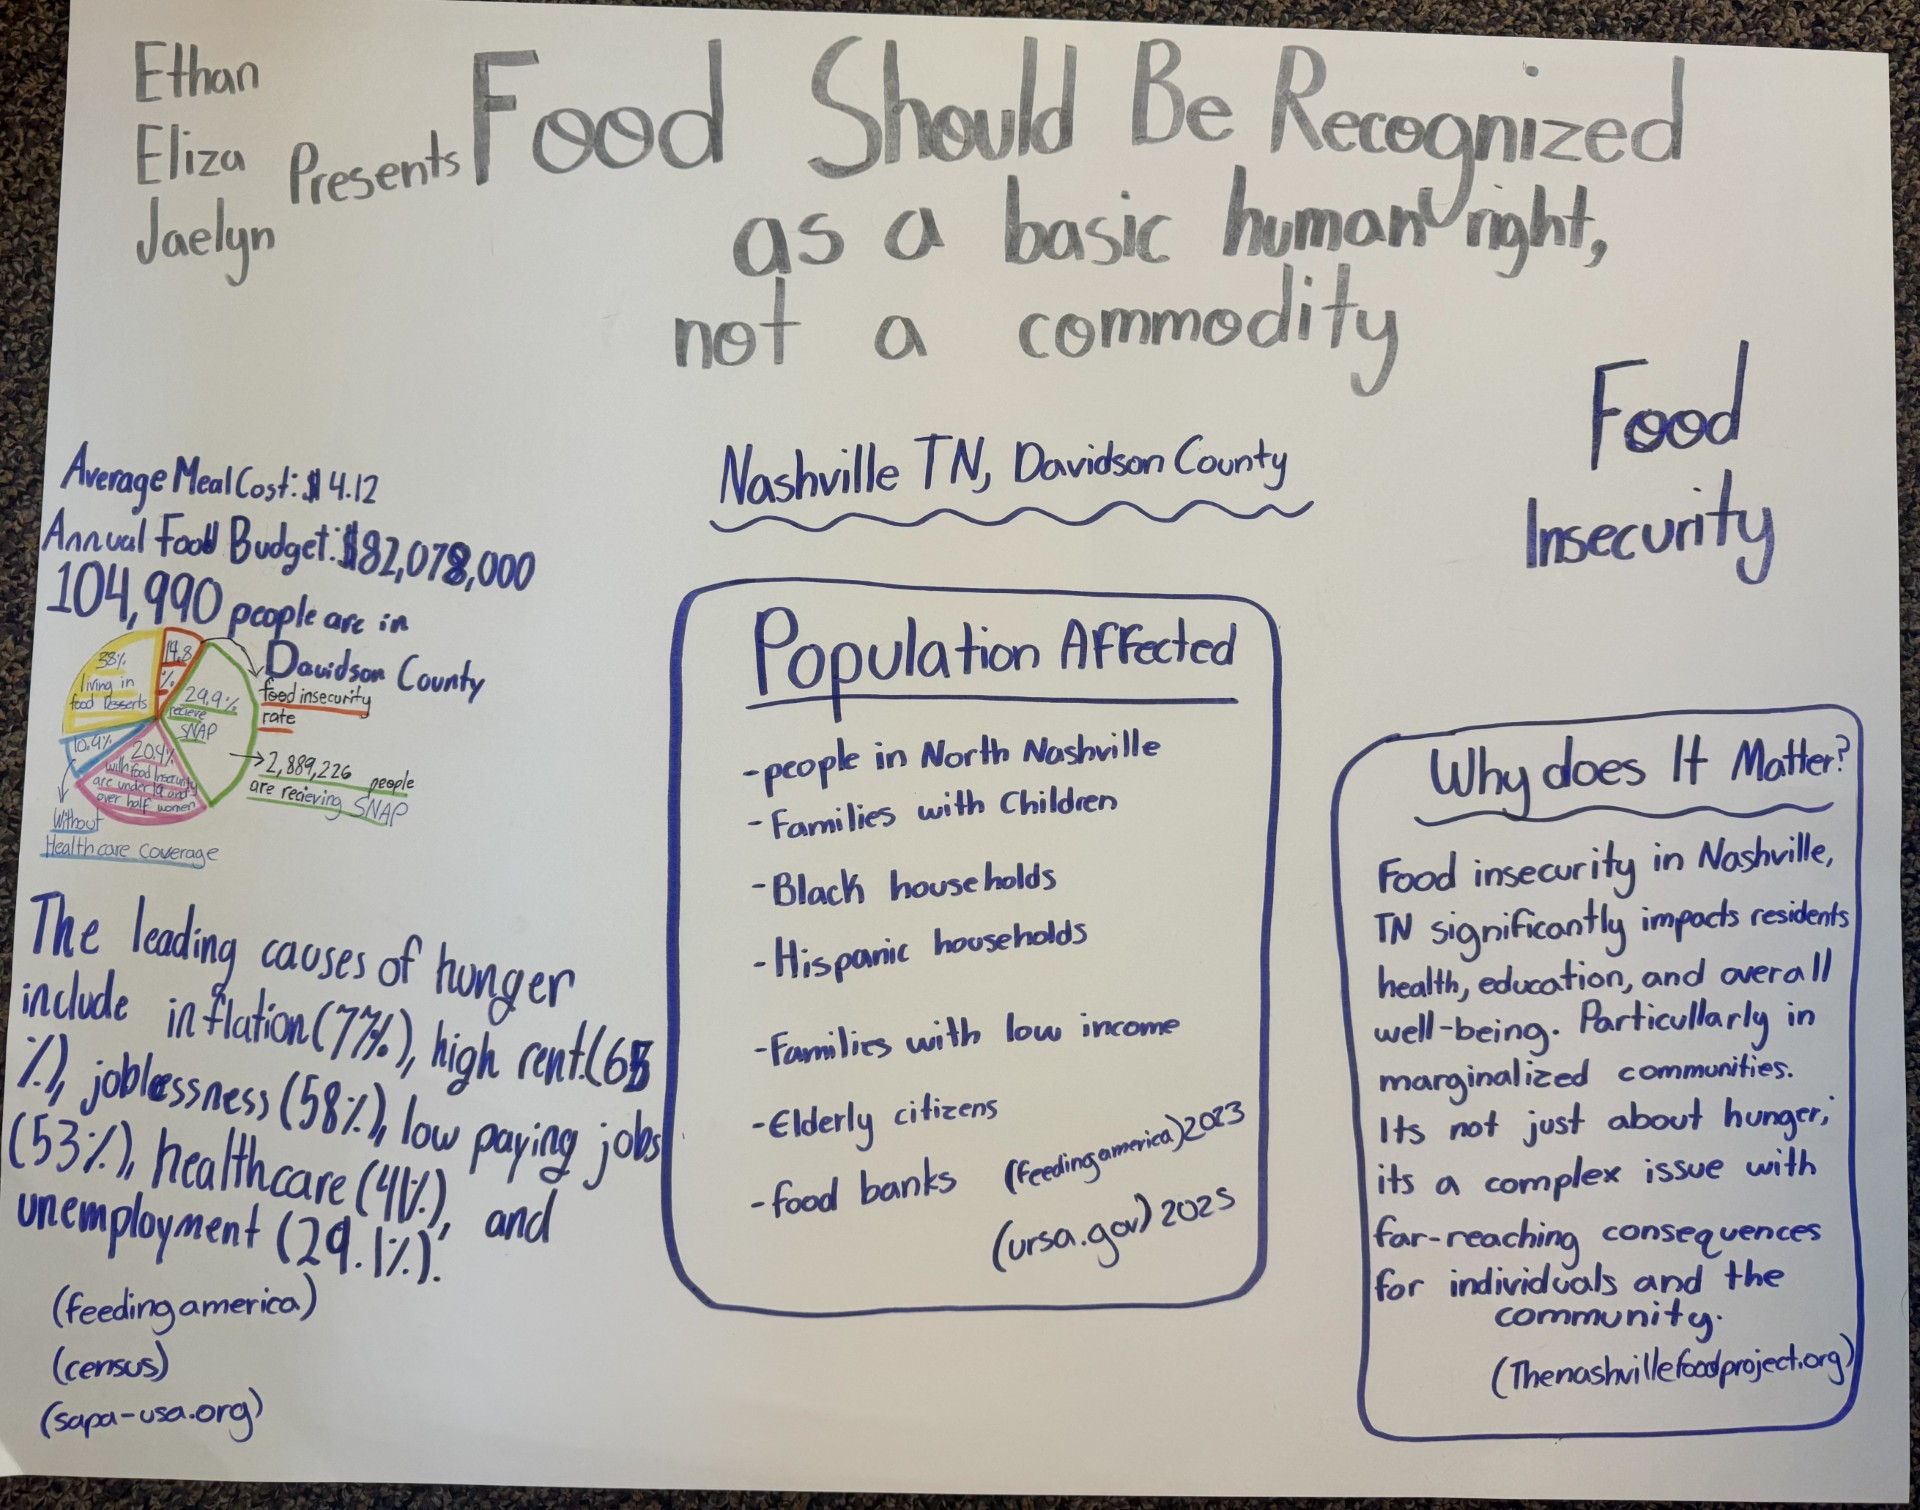 Ethan
Eliza
Jaelyn
Presents
Food Should Be Recognized
as a basic human right,
not a commodity
Food
Insecurity
Nashville TN, Davidson County
Average Meal Cost: $4.12
Annual Food Budget: $82,078,000
104,990 people are in
Davidson County
food insecurity
rate
14.8
%
38%
living in
food Desserts
29.9%
recieve
SNAP
10.4%
20.4%
with food insecurity
are under 19 and
over half women
2,889,226 people
are recieving SNAP
Without
Healthcare coverage
The leading causes of hunger
include inflation (77%), high rent (65
%), joblessness (58%), low paying jobs
(53%), healthcare (41%), and
unemployment (29.1%).
(feedingamerica)
(census)
(sapa-usa.org)
Population Affected
-people in North Nashville
-Families with Children
-Black households
-Hispanic households
-Families with low income
-Elderly citizens
-food banks (feedingamerica) 2023
(ursa.gov) 2025
Why does It Matter?
Food insecurity in Nashville,
TN significantly impacts residents
health, education, and overall
well-being. Particullarly in
marginalized communities.
Its not just about hunger;
its a complex issue with
far-reaching consequences
for individuals and the
community.
(Thenashvillefoodproject.org)